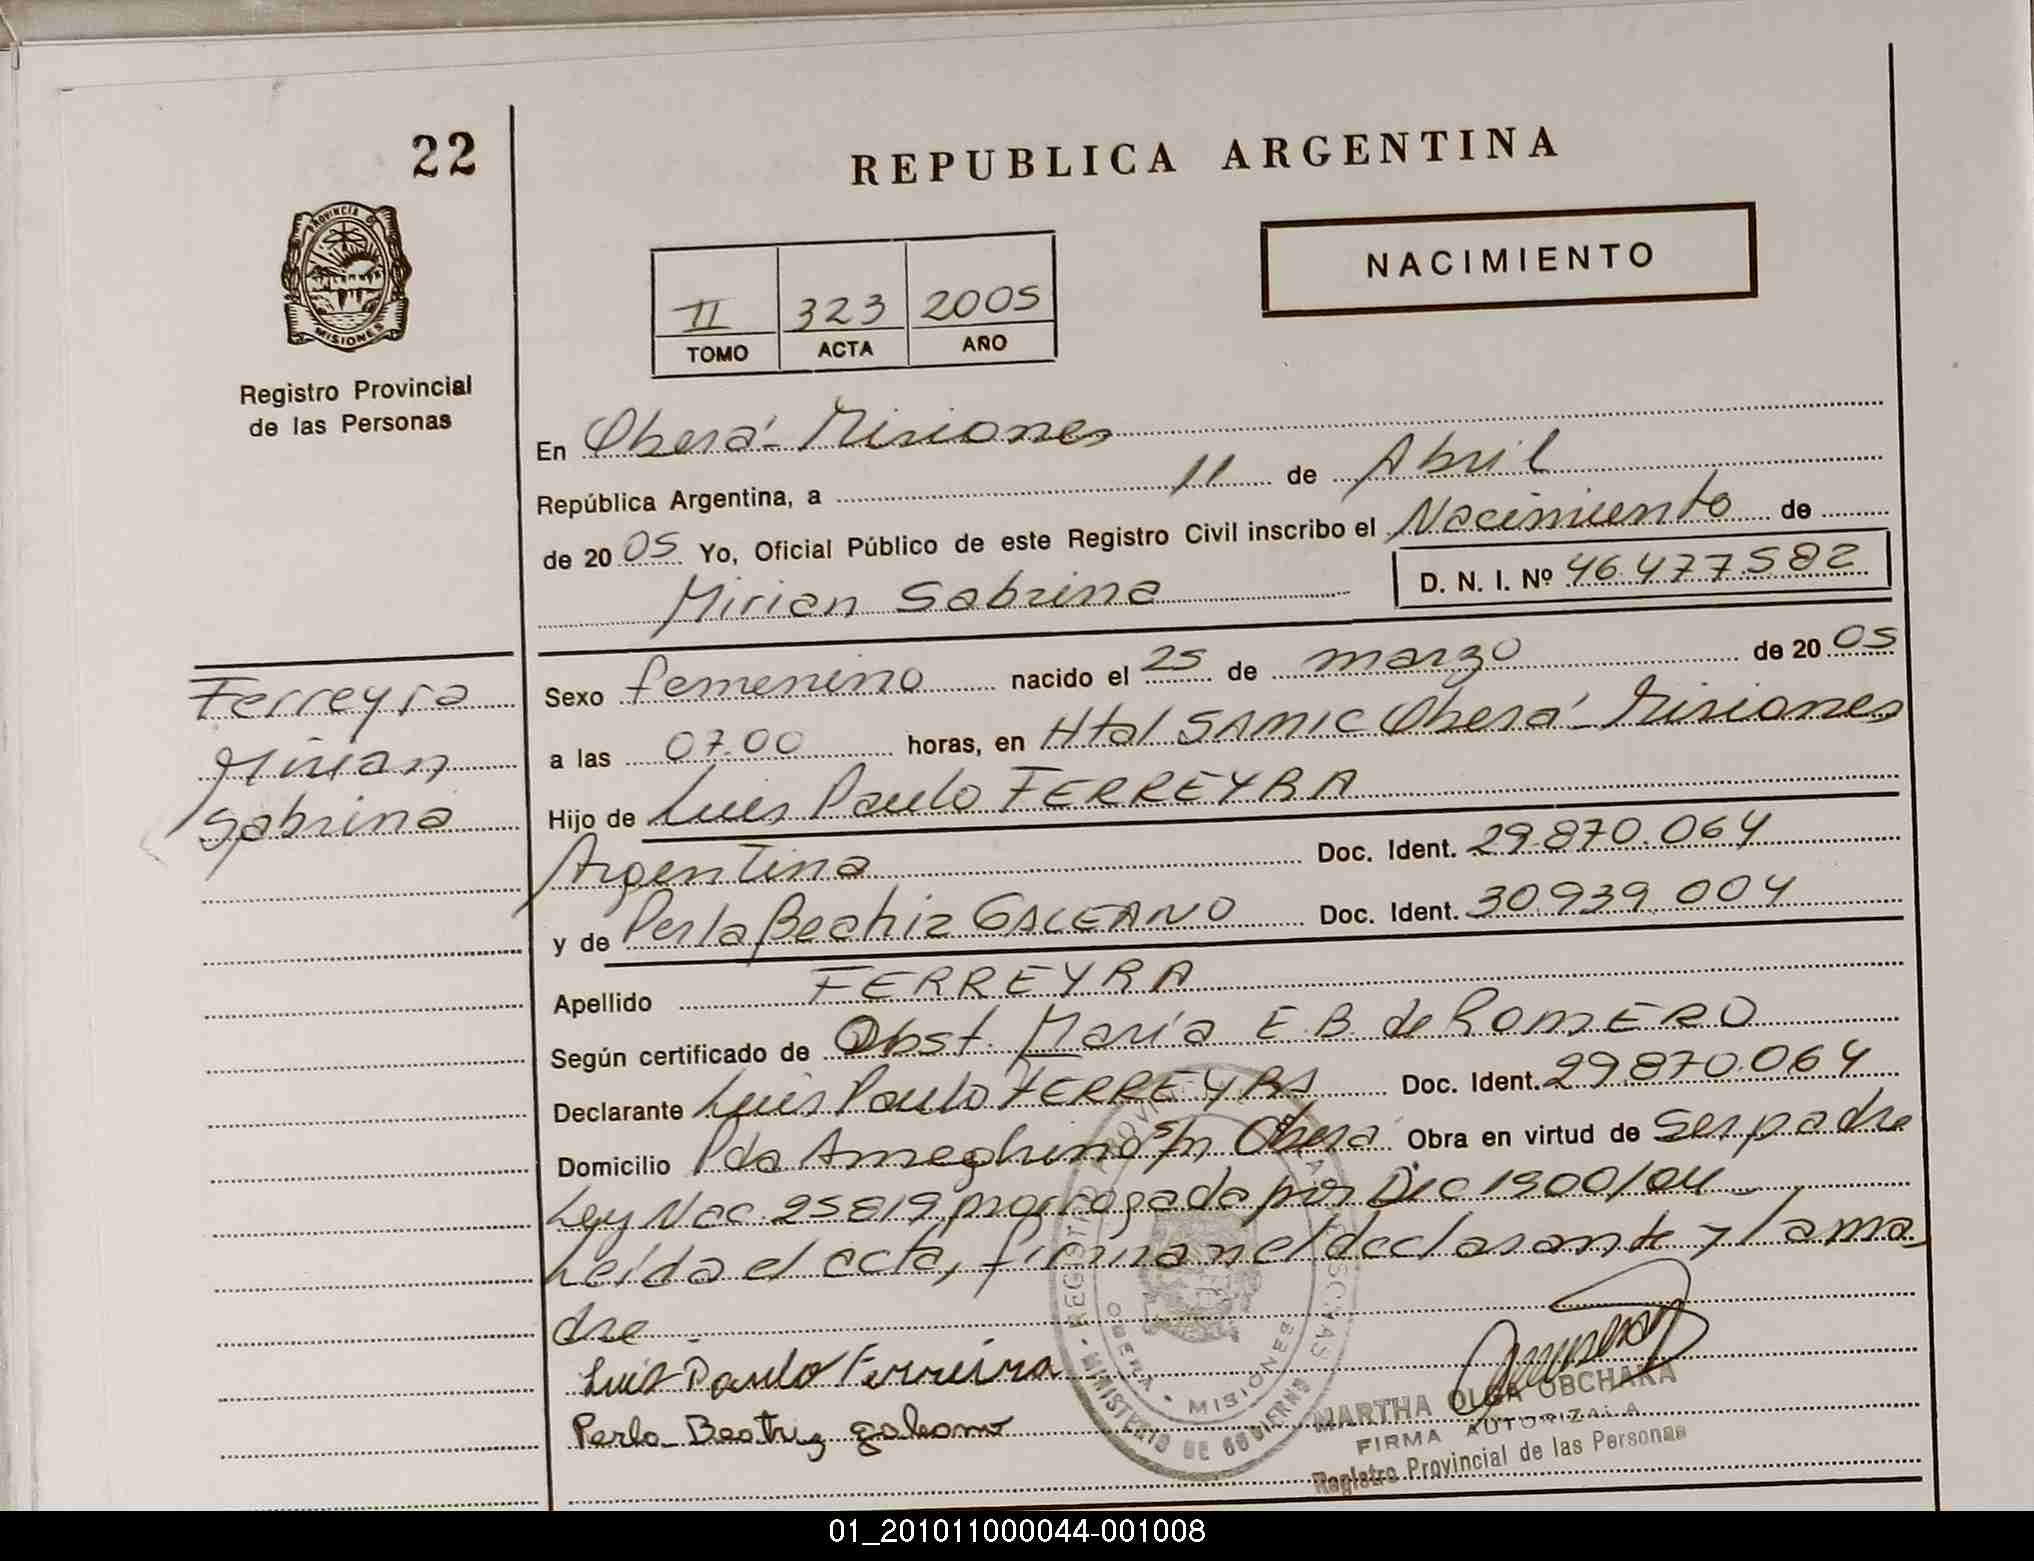 22
REPUBLICA ARGENTINA
PROVINCIA DE
MISIONES
NACIMIENTO
II 323 2005
TOMO ACTA AÑO
Registro Provincial
de las Personas
En Oberá - Misiones
República Argentina, a 11 de Abril
de 20 05 Yo, Oficial Público de este Registro Civil inscribo el Nacimiento de
Mirian Sabrina D. N. I. Nº 46.477.582
Ferreyra
Mirian
Sabrina
Sexo femenino nacido el 25 de marzo de 20 05
a las 07.00 horas, en Htal SAMIC Oberá - Misiones
Hijo de Luis Paulo FERREYRA
Argentina Doc. Ident. 29.870.064
y de Perla Beatriz GALEANO Doc. Ident. 30.939.004
Apellido FERREYRA
Según certificado de Obst. María E. B. de ROMERO
Declarante Luis Paulo FERREYRA Doc. Ident. 29.870.064
Domicilio Pda Ameghino s/n Oberá Obra en virtud de ser padre
Ley Nac. 25819 prorrogada por Dic 1900/04
Leída el acta, firman el declarante y la ma-
dre
Luis Paulo Ferreira
Perla Beatriz galeano
OBERA - MISIONES
MINISTERIO DE GOBIERNO
MARTHA OLGA OBCHAKA
FIRMA AUTORIZADA
Registro Provincial de las Personas
01_201011000044-001008